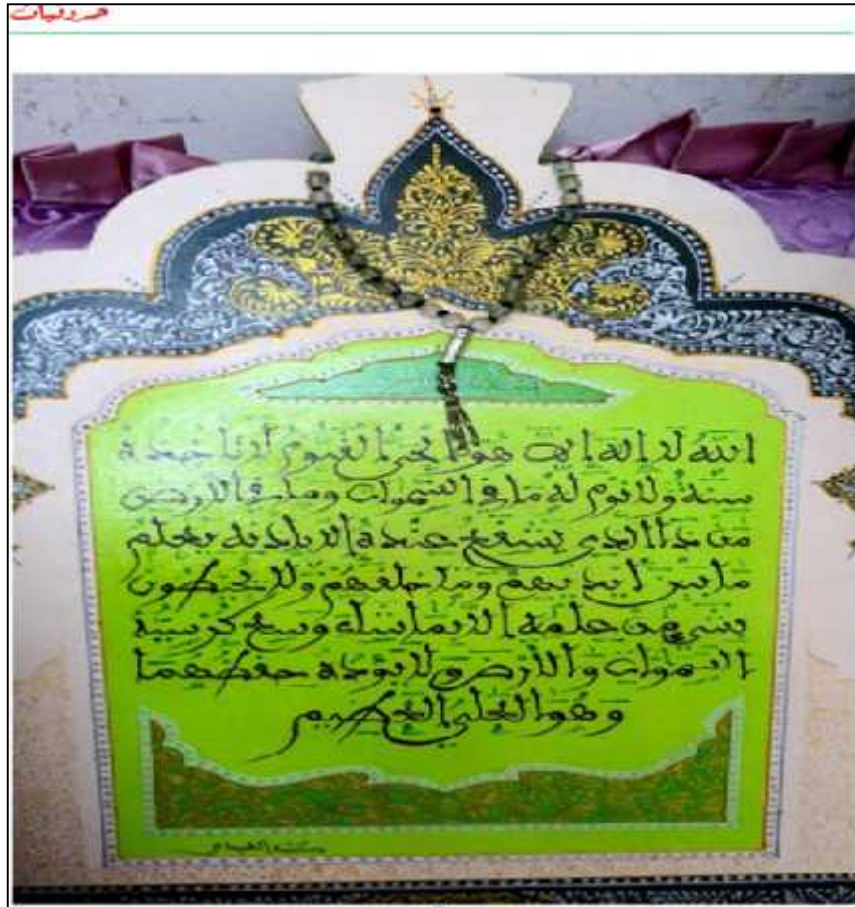 الله لا إله إلا هو الحي القيوم لا تأخذه
سنة ولا نوم له ما في السموات وما في الأرض
من ذا الذي يشفع عنده إلا بإذنه يعلم
ما بين أيديهم وما خلفهم ولا يحيطون
بشيء من علمه إلا بما شاء وسع كرسيه
السموات والأرض ولا يؤده حفظهما
وهو العلي العظيم